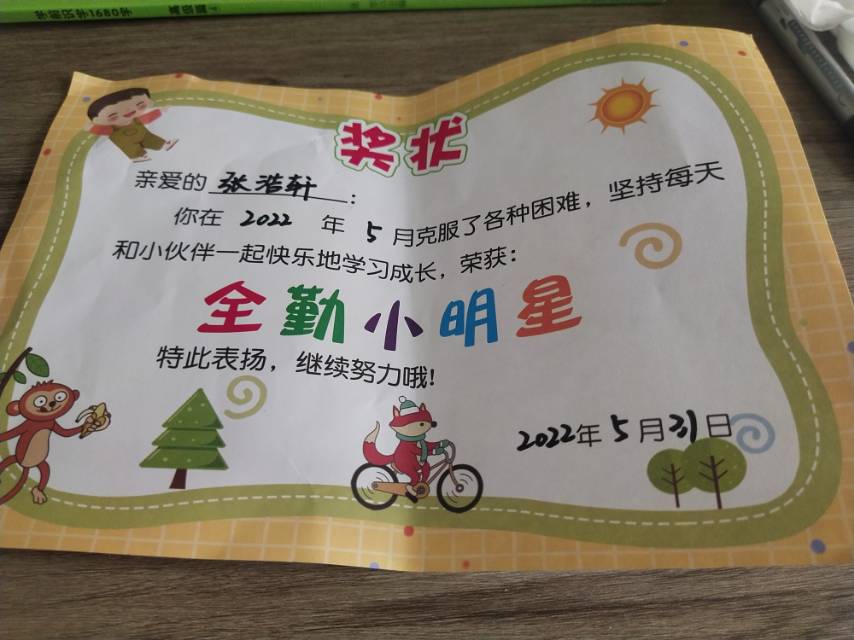 学前识字1680字 高级篇4
奖状
亲爱的 张浩轩：
你在 2022 年 5 月克服了各种困难，坚持每天
和小伙伴一起快乐地学习成长，荣获：
全勤小明星
特此表扬，继续努力哦！
2022年5月31日